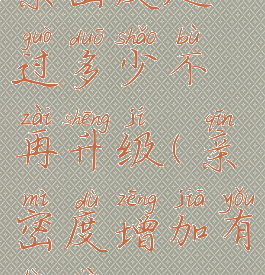 guò duō shǎo bù
过多少不
zài shēng jí qīn
再升级(亲
mì dù zēng jiā yǒu
密度增加有